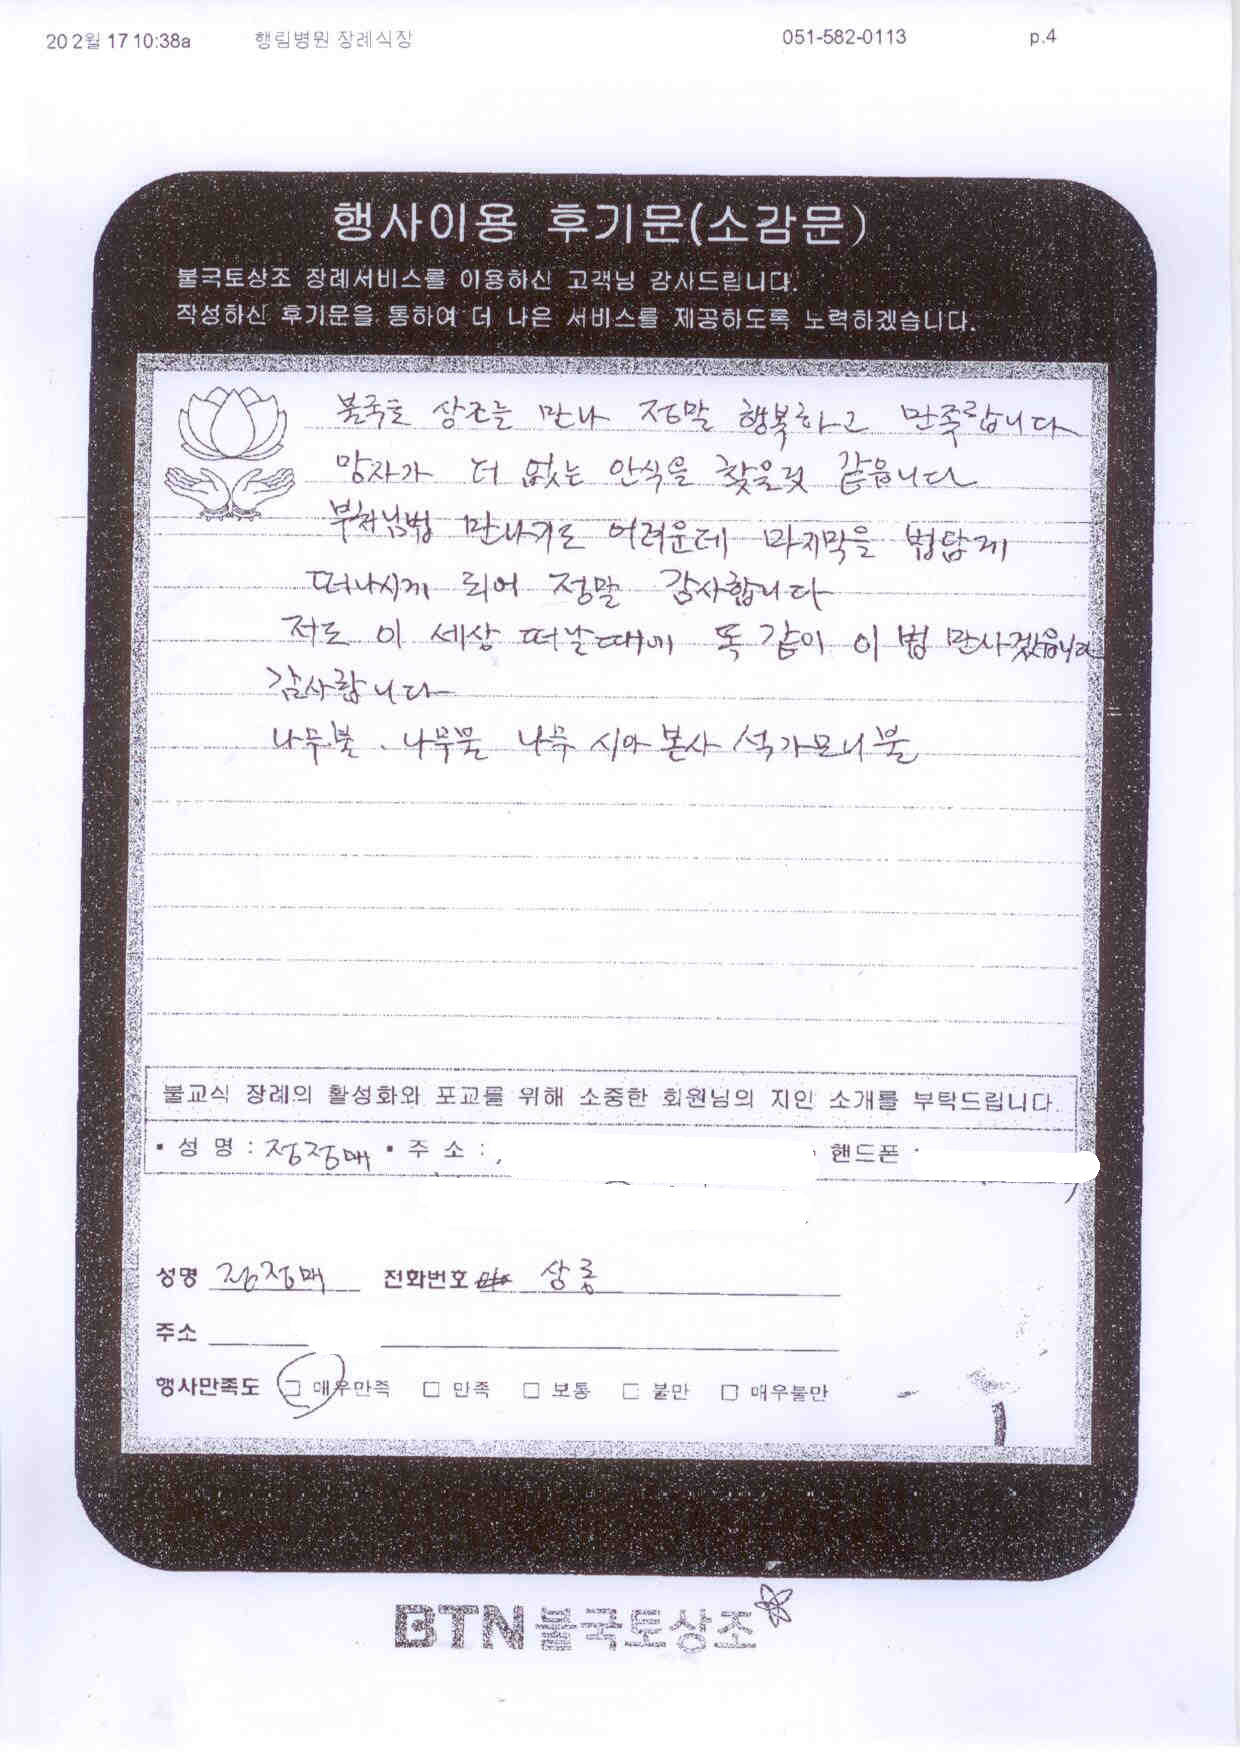 20 2월 17 10:38a 행림병원 장례식장 051-582-0113 p.4
행사이용 후기문(소감문)
불국토상조 장례서비스를 이용하신 고객님 감사드립니다.
작성하신 후기문을 통하여 더 나은 서비스를 제공하도록 노력하겠습니다.
불국토 상조를 만나 정말 행복하고 만족합니다
망자가 더 없는 안식을 찾을것 같읍니다
부처님법 만나기도 어려운데 마지막을 법답게
떠나시게 되어 정말 감사합니다
저도 이 세상 떠날때에 똑같이 이 법 만나겠읍니다
감사합니다
나무불 . 나무불 나무 시아본사 석가모니불
불교식 장례의 활성화와 포교를 위해 소중한 회원님의 지인 소개를 부탁드립니다.
▪ 성 명 : 정정매 ▪ 주 소 : 핸드폰 :
성명 정정매 전화번호 상동
주소
행사만족도 □ 매우만족 □ 만족 □ 보통 □ 불만 □ 매우불만
BTN불국토상조